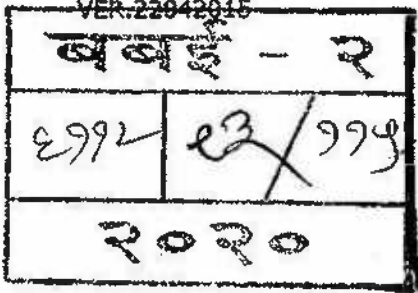 VER-22042015
बबई - २
६११२ ९३/११५
२०२०